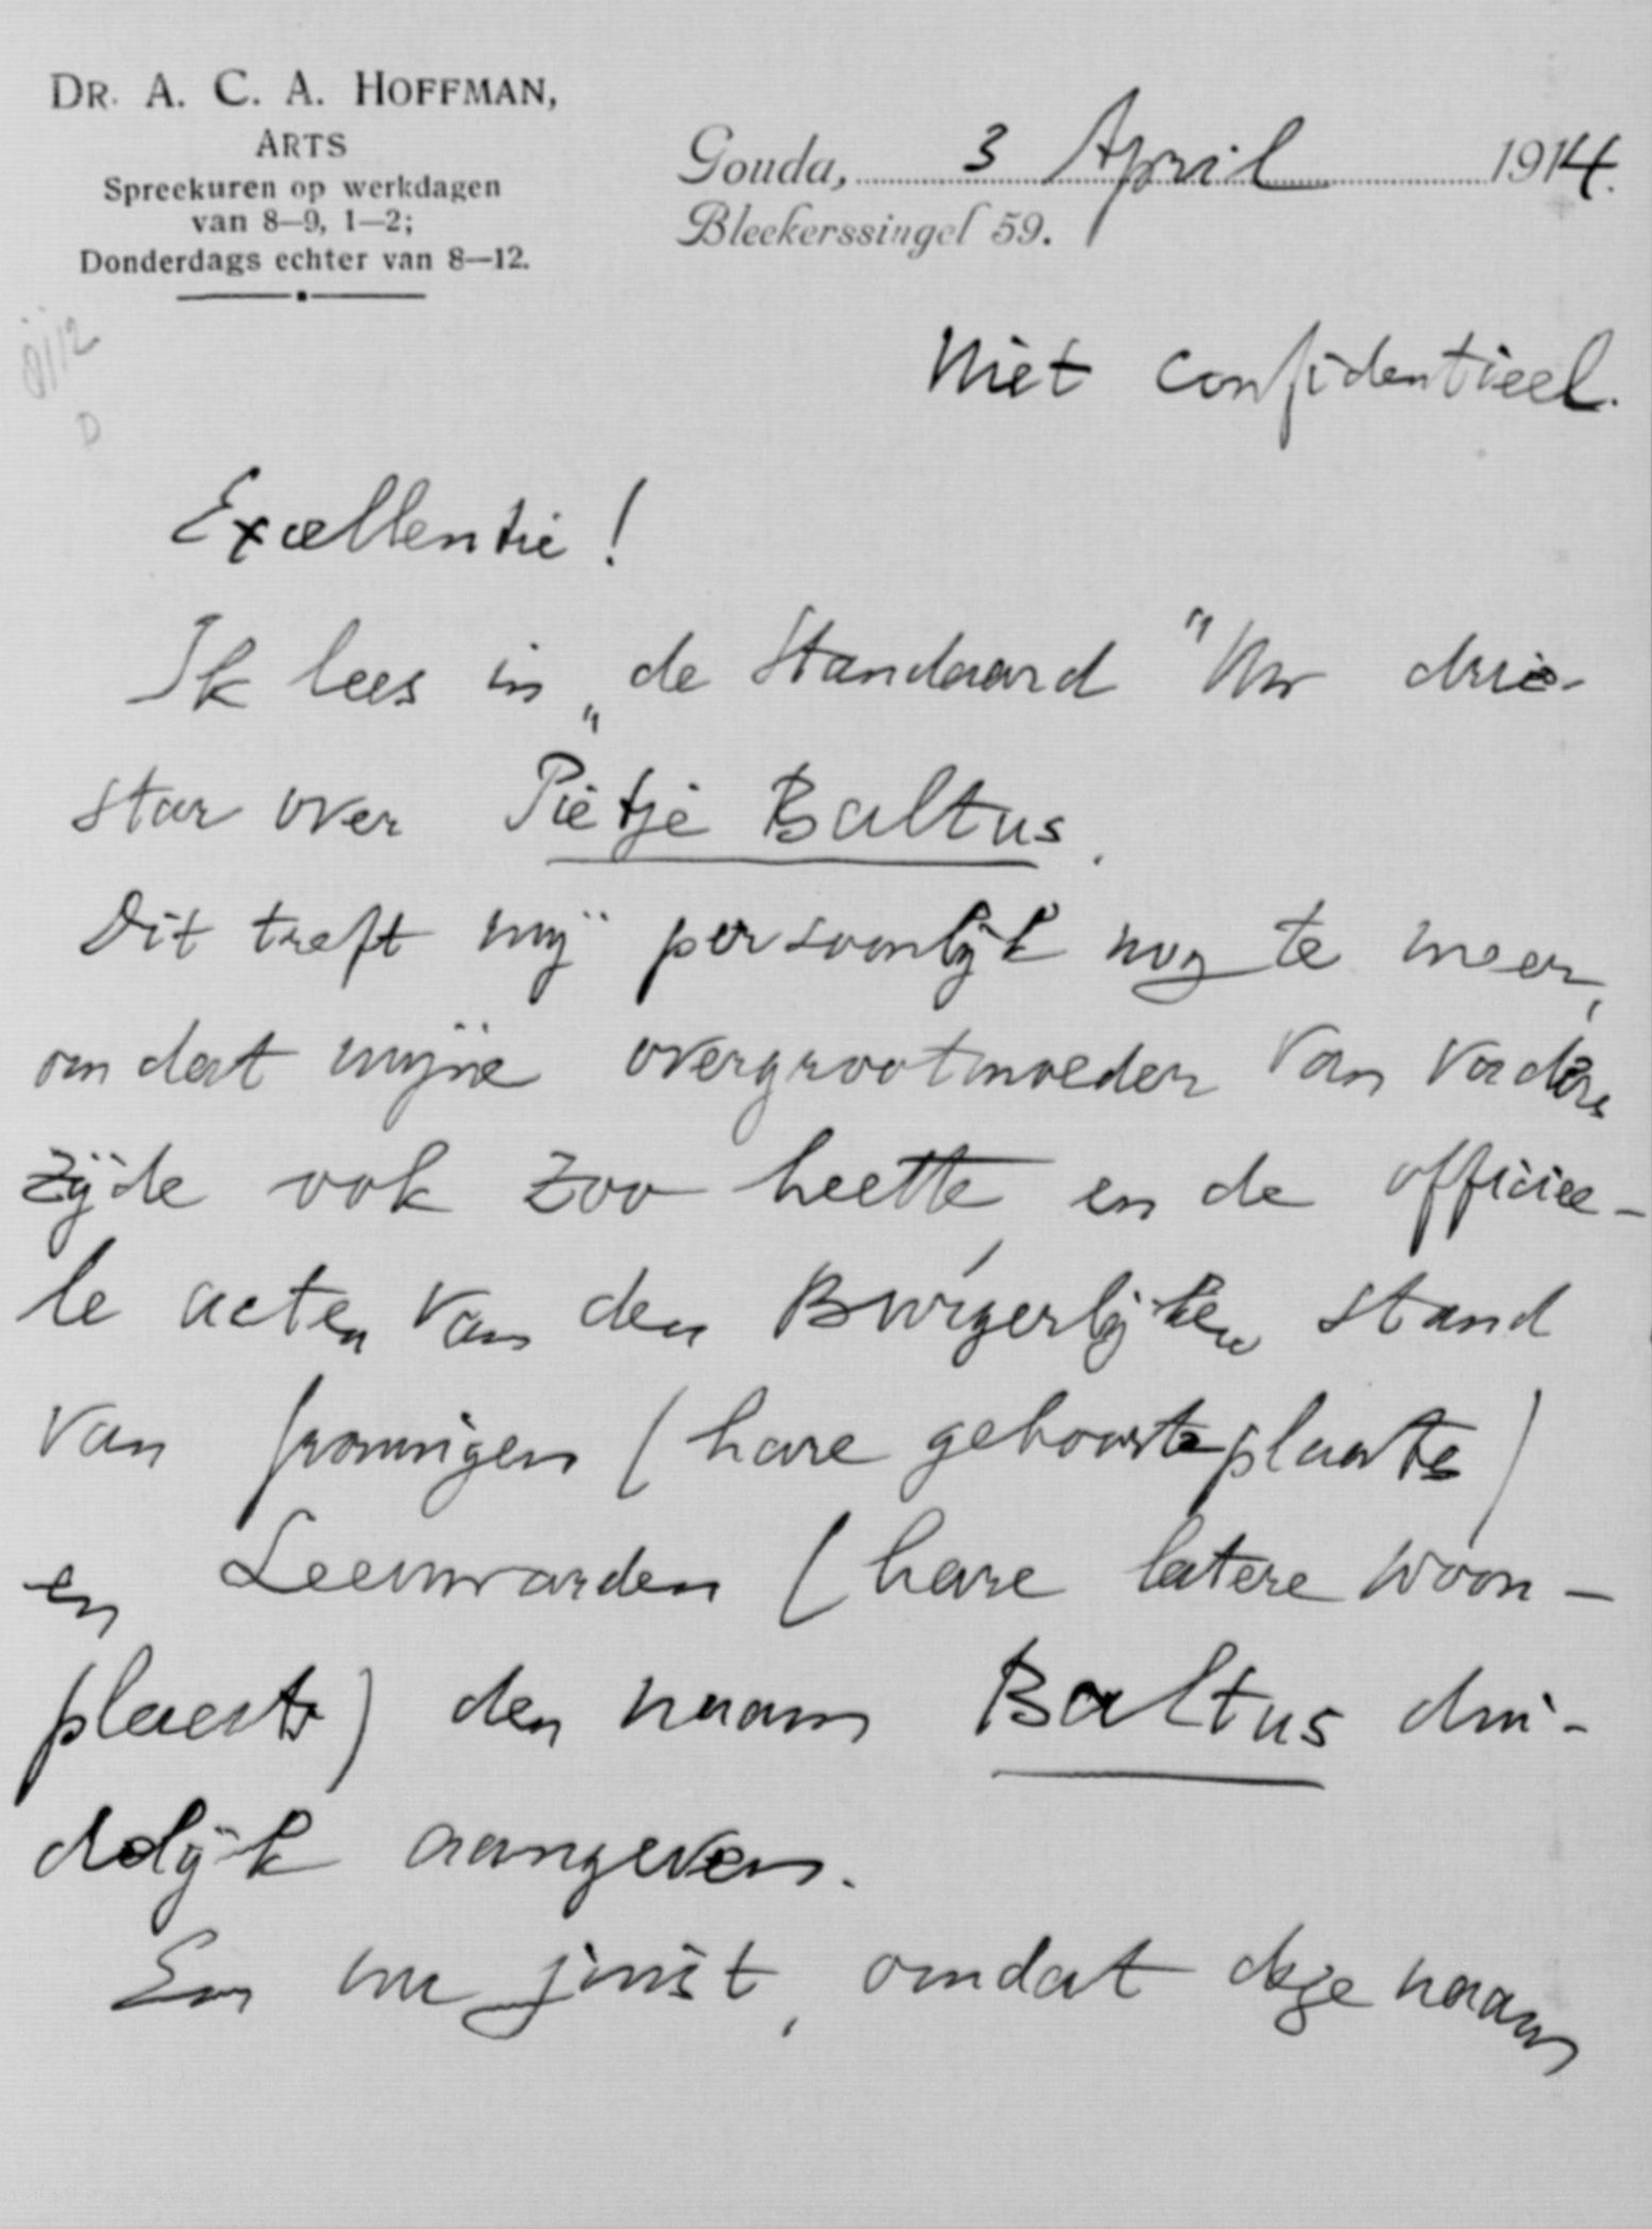 DR. A. C. A. HOFFMAN,
ARTS
Spreekuren op werkdagen
van 8—9, 1—2;
Donderdags echter van 8—12.
Gouda, 3 April 1914.
Bleekerssingel 59.
Niet confidentieel.
Excellentie!
Ik lees in „de Standaard" Uw drie-
star over Pietje Baltus.
Dit treft mij persoonlijk nog te meer,
omdat mijne overgrootmoeder van vaders
zijde ook zoo heette en de officiee-
le acten van den Burgerlijken stand
van Groningen (hare geboorteplaats)
en Leeuwarden (hare latere woon-
plaats) den naam Baltus dui-
delijk aangeven.
En nu juist, omdat deze naam